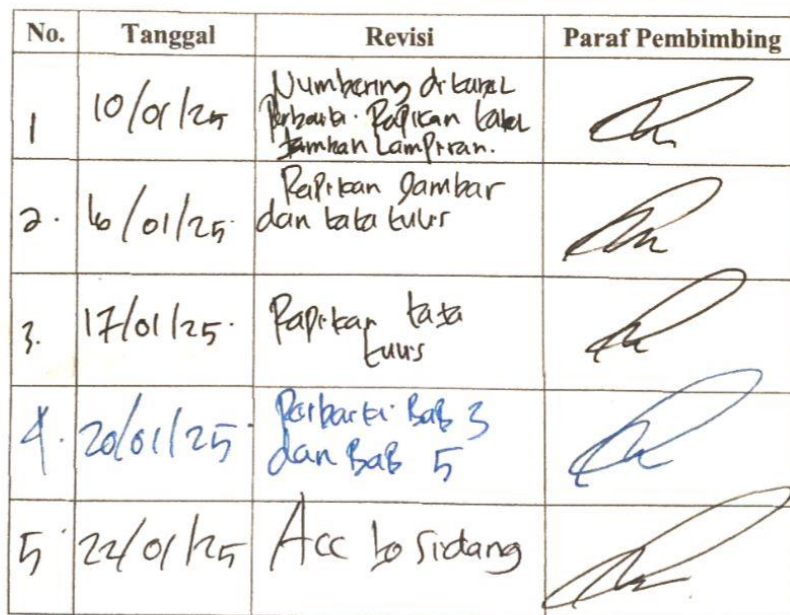 No. Tanggal Revisi Paraf Pembimbing
1 10/01/25 Numbering di tabel
Perbaiki. Rapikan tabel
tambah Lampiran.
2. 16/01/25. Rapikan gambar
dan tata tulis
3. 17/01/25. Rapikan tata
tulis
4. 20/01/25. Perbaiki Bab 3
dan Bab 5
5. 22/01/25 Acc to sidang